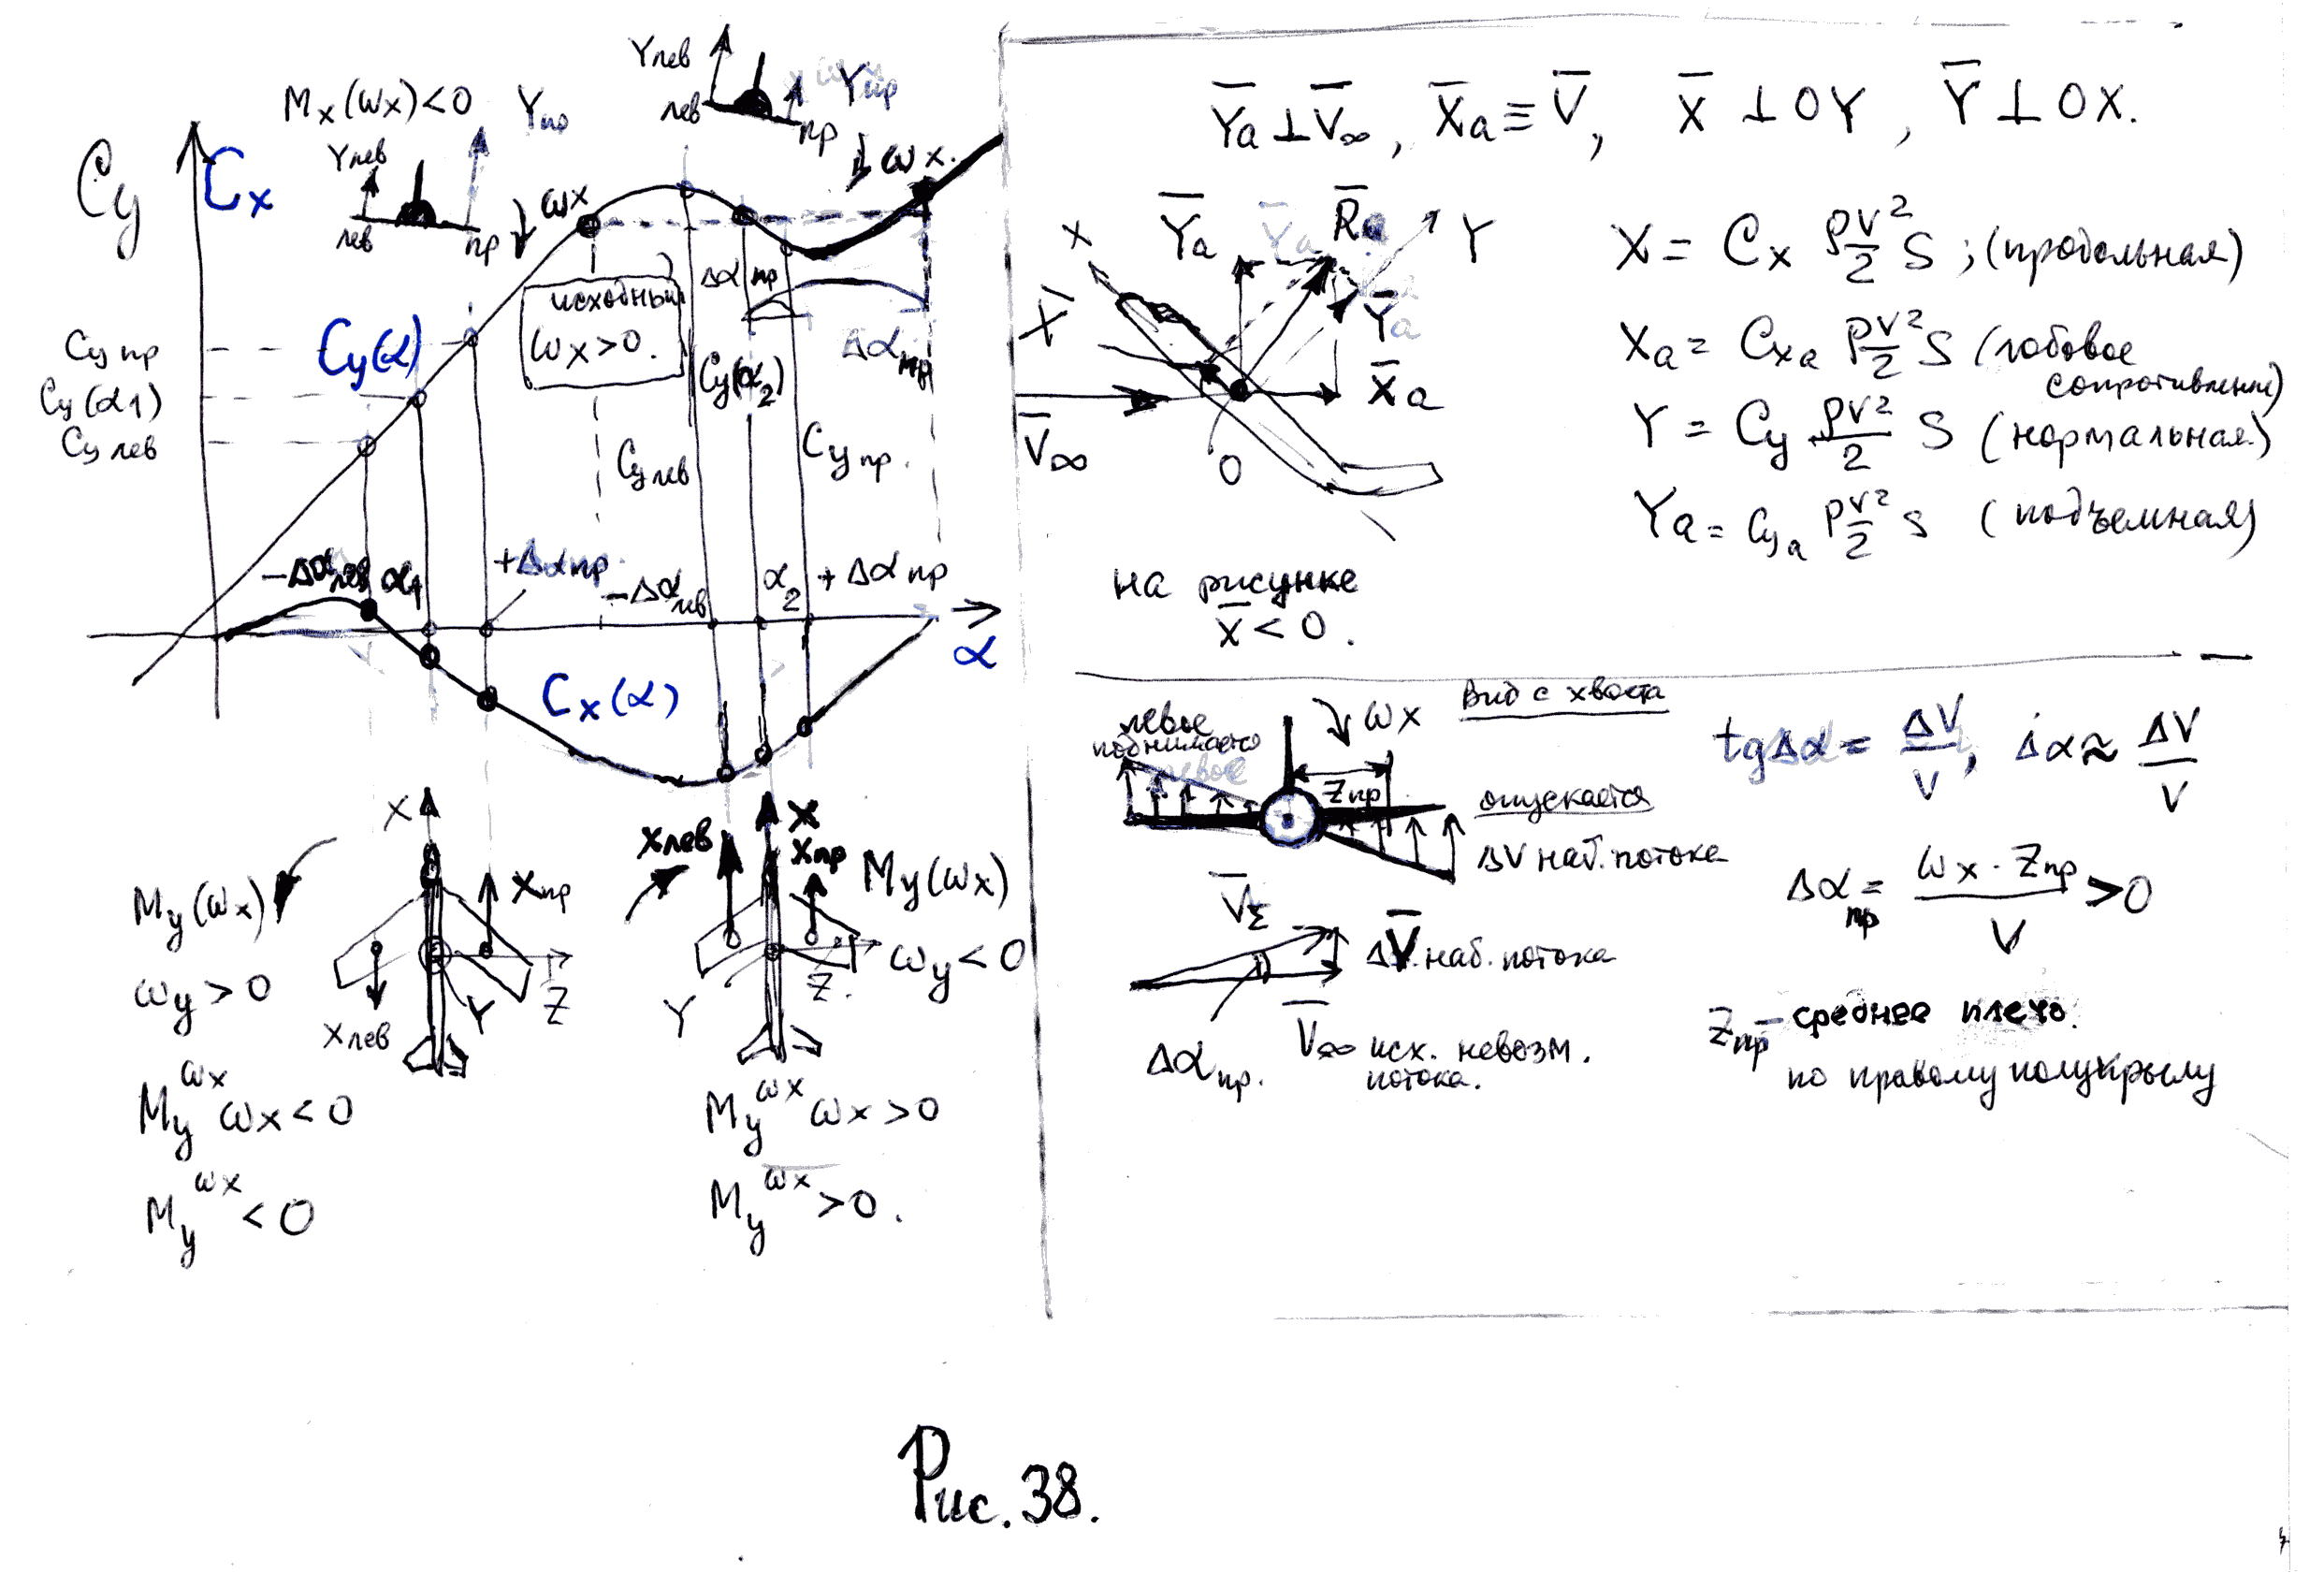 Mx(ωx)<0
Yпр
Yлев
Yлев
Yпр
лев
пр
лев
пр
Cy
Cx
ωx
ωx.
исходный
ωx>0.
Δαпр
Δαпр
Cy пр
Cy(α1)
Cy лев
Cy(α)
Cy(α2)
Cy лев
Cy пр.
-Δαлев
α1
+Δαпр
-Δαлев
α2
+Δαпр
α
Cx(α)
X
My(ωx)
ωy>0
Xпр
Xлев
Y
Z
My^ωx ωx<0
My^ωx<0
Xлев
X
Xпр
My(ωx)
ωy<0
Y
Z.
My^ωx ωx>0
My^ωx>0.
Ȳa⊥V̄∞, X̄a≡V̄, X̄⊥OY, Ȳ⊥OX.
X
X̄
Ȳa
Ya
R̄a
Y
Ȳa
X̄a
V̄∞
O
X = Cx ρV²/2 S; (продольная)
Xa = Cxa ρV²/2 S (лобовое
сопротивление)
Y = Cy ρV²/2 S (нормальная)
Ya = Cya ρV²/2 S (подъемная)
на рисунке
X̄<0.
Вид с хвоста
левое
поднимается
левое
ωx
Zпр
опускается
ΔV наб. потока
V̄Σ
ΔV̄ наб. потока
V̄∞ исх. невозм.
потока.
Δαпр.
tgΔα = ΔV/V, Δα≈ΔV/V
Δαпр = ωx·Zпр/V >0
Zпр - среднее плечо.
по правому полукрылу
Рис. 38.